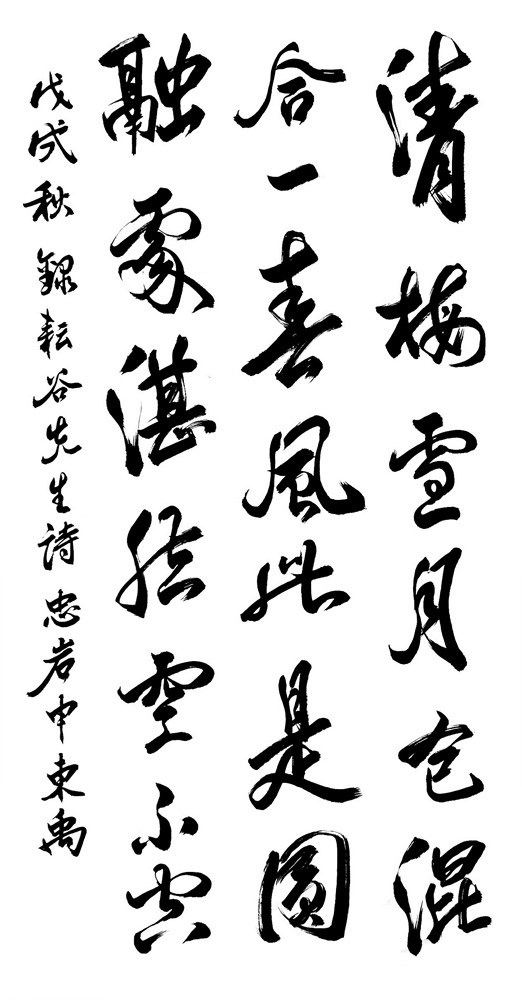 清梅雪月色混
合一喜風此是圓
融處湛然空不空
戊戌秋錄耘谷先生詩忠岩申東禹